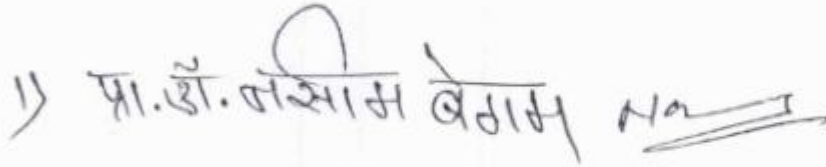 1) प्रा.डॉ. नसीम बेगम